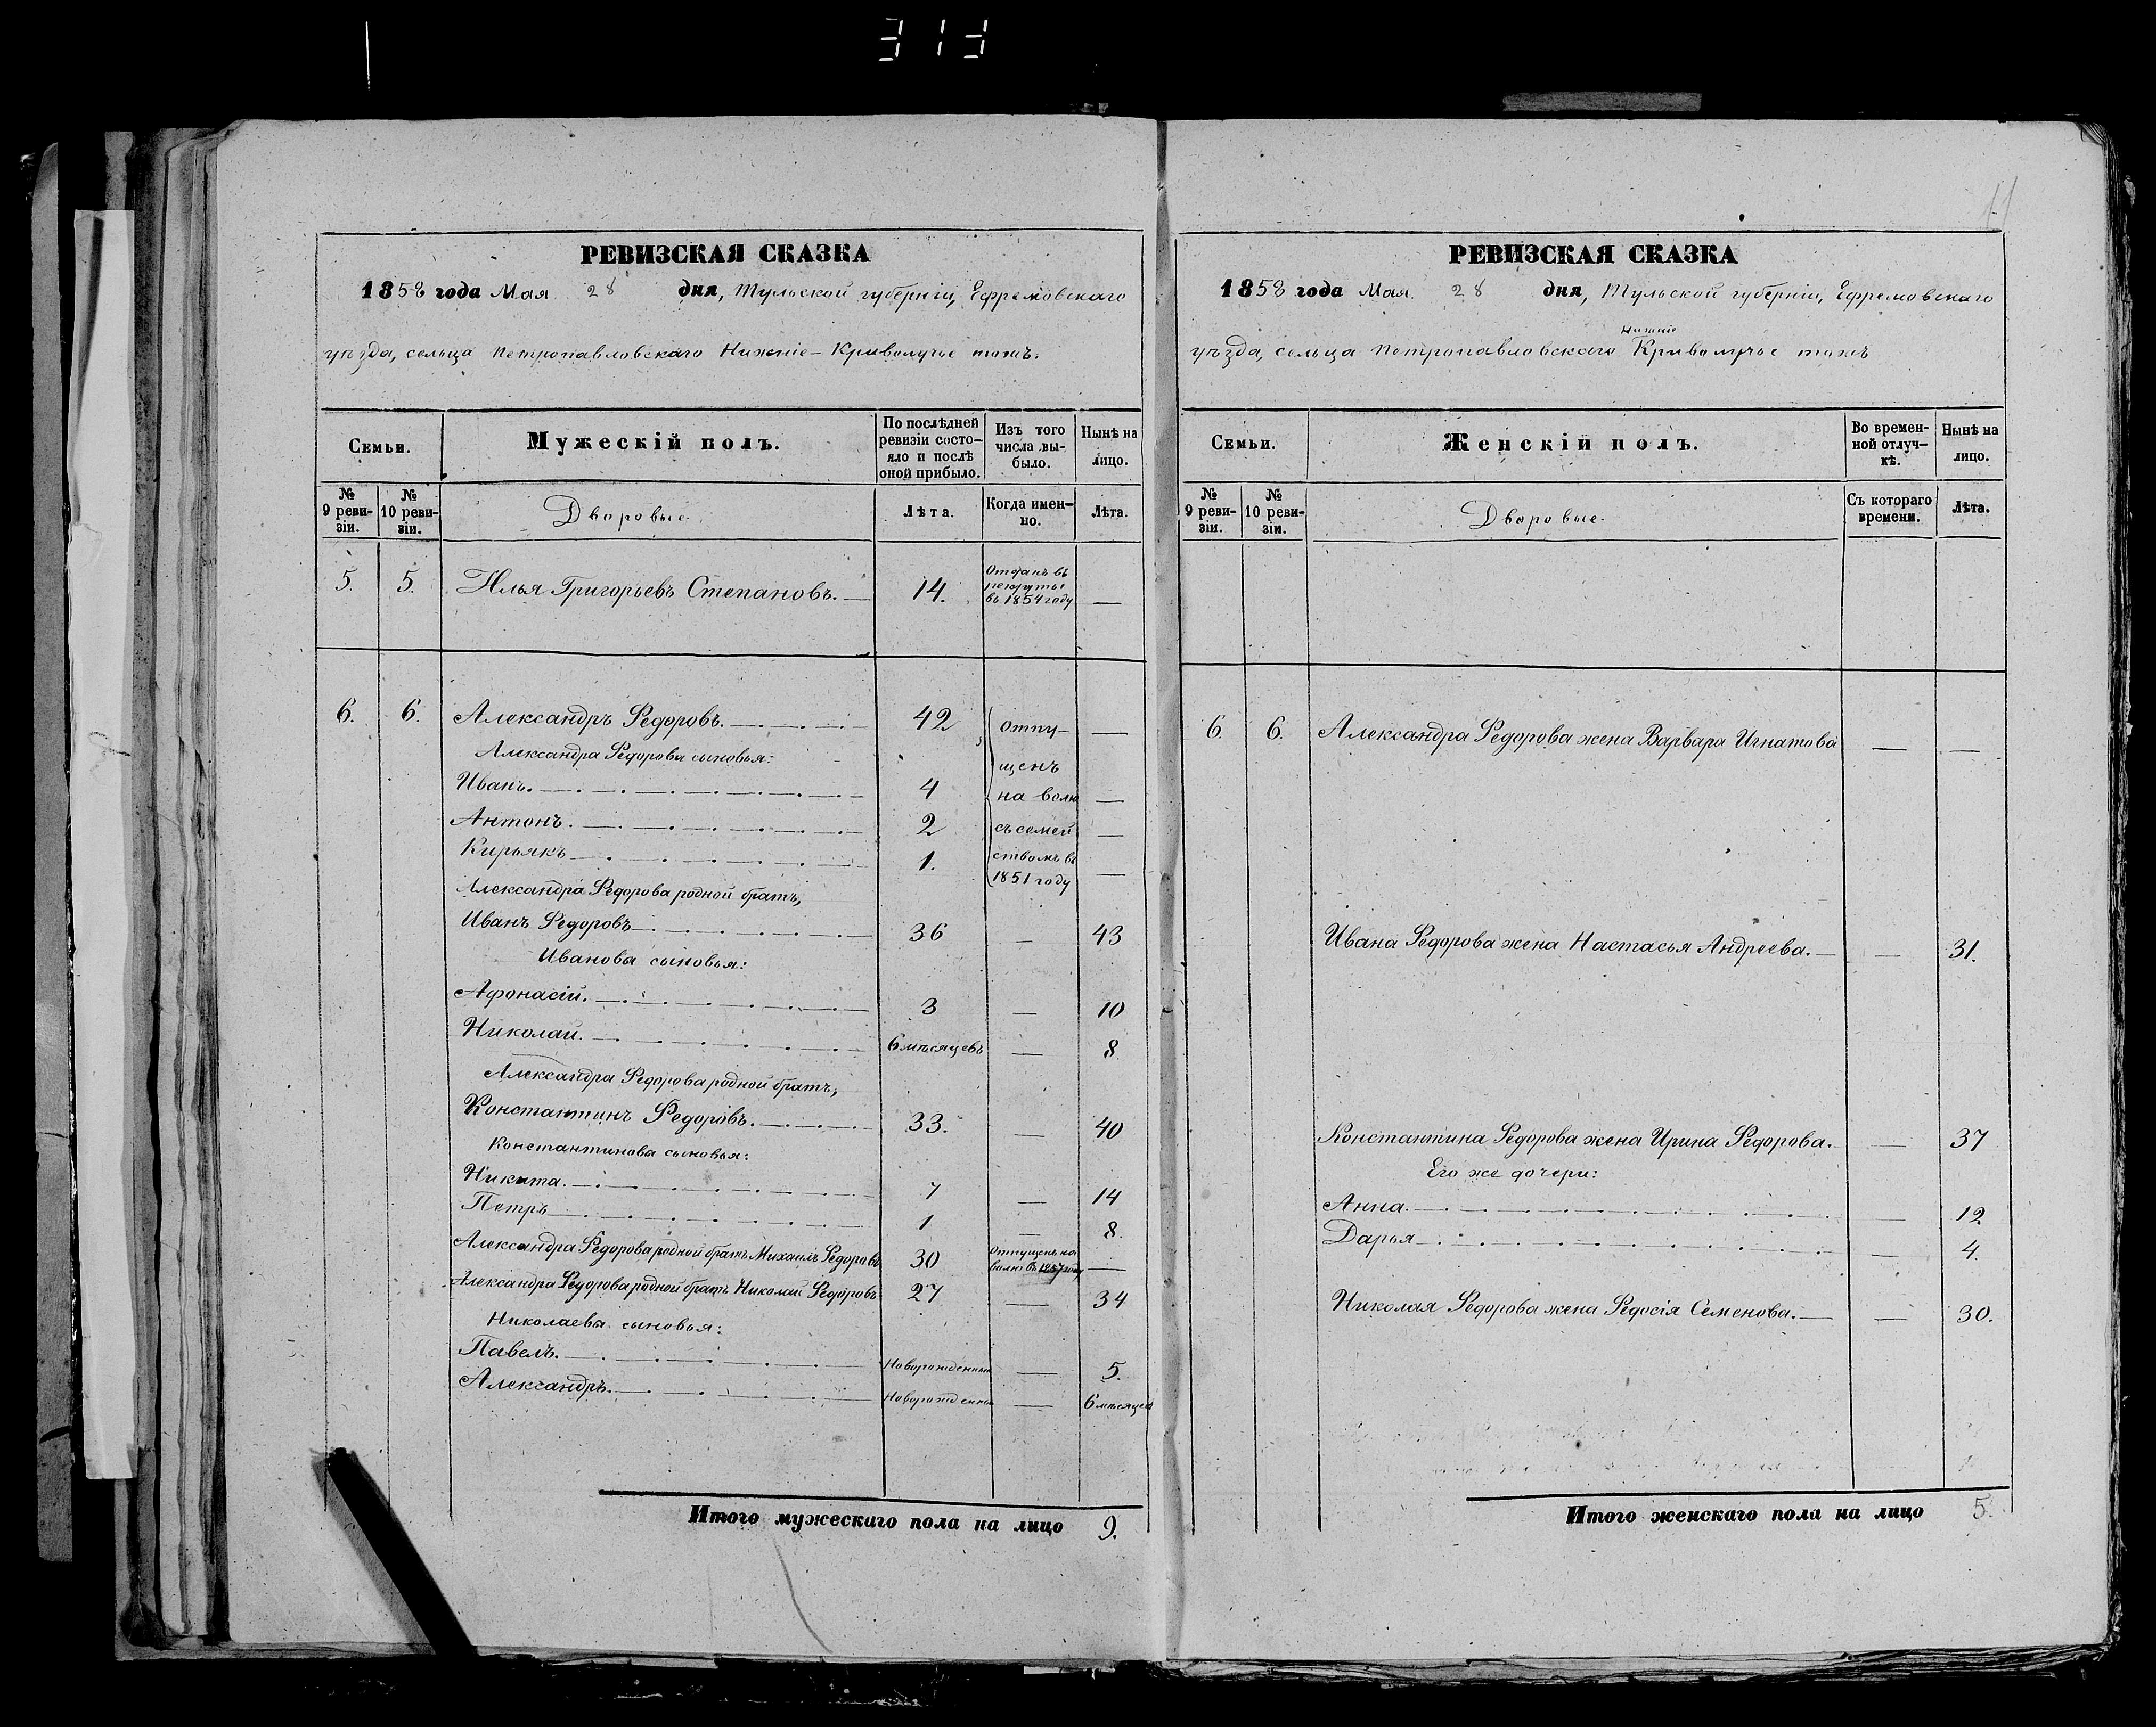 313
РЕВИЗСКАЯ СКАЗКА
1858 года Мая 28 дня, Тульской губерніи, Ефремовскаго
уѣзда, сельца Петропавловскаго Нижніе-Криволучье тожъ.
Семьи.
Мужескій полъ.
По послѣдней ревизіи состо-
яло и послѣ оной прибыло.
Изъ того числа вы-
было.
Нынѣ на лицо.
№ 9 реви-
зіи.
№ 10 реви-
зіи.
Дворовые.
Лѣта.
Когда имен-
но.
Лѣта.
5. 5. Илья Григорьевъ Степановъ. — 14. Отданъ въ рекруты въ 1854 году —
6. 6. Александръ Ѳедоровъ. 42 —
Александра Ѳедорова сыновья:
Иванъ. 4 —
Антонъ. 2 —
Кирьякъ 1. —
отпу-
щенъ
на волю
съ семей
ствомъ въ
1851 году
Александра Ѳедорова родной братъ,
Иванъ Ѳедоровъ 36 — 43
Иванова сыновья:
Афонасій. 3 — 10
Николай. 6 мѣсяцевъ — 8
Александра Ѳедорова родной братъ,
Константинъ Ѳедоровъ. 33. — 40
Константинова сыновья:
Никита. 7 — 14
Петръ 1 — 8.
Александра Ѳедорова родной братъ Михаилъ Ѳедоровъ 30 Отпущенъ на волю въ 1857 году —
Александра Ѳедорова родной братъ Николай Ѳедоровъ 27 — 34
Николаева сыновья:
Павелъ. Новорожденный — 5.
Александръ. Новорожденный — 6 мѣсяцевъ
Итого мужескаго пола на лицо 9.
11
РЕВИЗСКАЯ СКАЗКА
1858 года Мая 28 дня, Тульской губерніи, Ефремовскаго
Нижніе
уѣзда, сельца Петропавловскаго Криволучье тожъ
Семьи.
Женскій полъ.
Во времен-
ной отлуч-
кѣ.
Нынѣ на лицо.
№ 9 реви-
зіи.
№ 10 реви-
зіи.
Дворовые.
Съ котораго времени.
Лѣта.
6 6. Александра Ѳедорова жена Варвара Игнатова — —
Ивана Ѳедорова жена Настасья Андреева. — — 31.
Константина Ѳедорова жена Ирина Ѳедорова. — 37
Его же дочери:
Анна. — 12
Дарья — 4.
Николая Ѳедорова жена Ѳедосія Семенова. — — 30.
Итого женскаго пола на лицо 5.